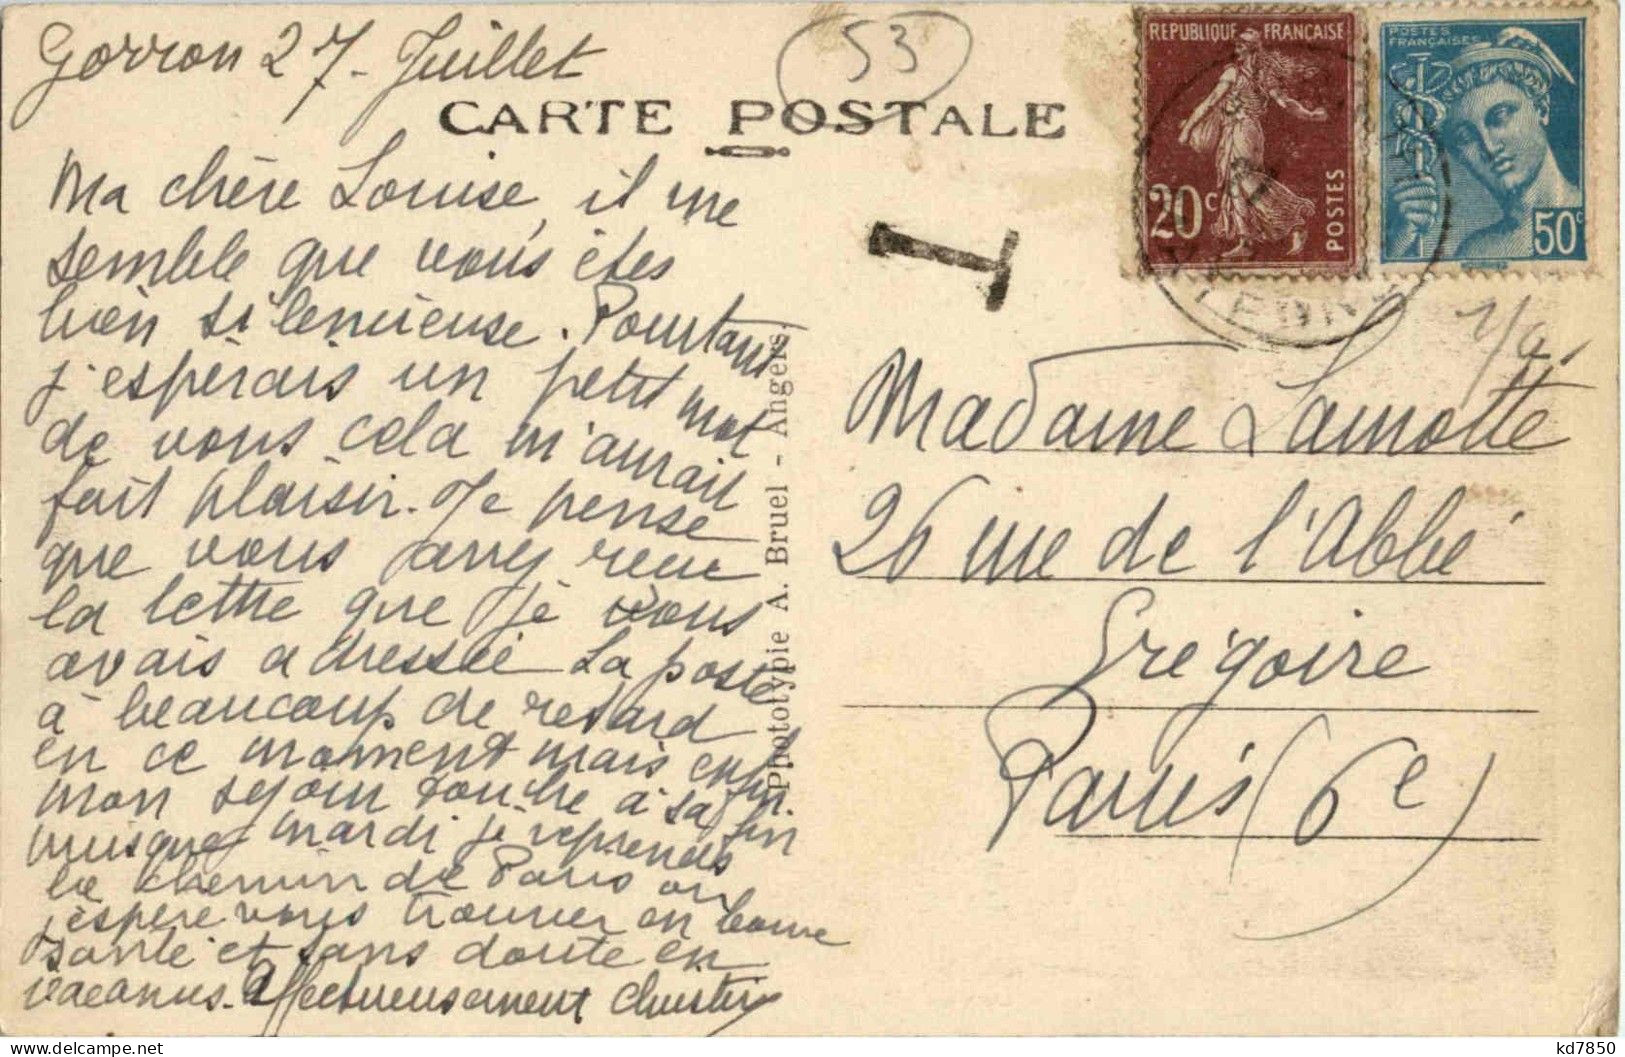 Gorron 27 - Juillet
53
CARTE POSTALE
REPUBLIQUE FRANÇAISE
20c
POSTES
POSTES
FRANÇAISES
50c
T
Ma chère Louise, il me
semble que vous êtes
bien silencieuse. Pourtant
j'espérais un petit mot
de vous cela m'aurait
fait plaisir. Je pense
que vous avez reçu
la lettre que je vous
avais adressée La poste
à beaucoup de retard
en ce moment mais enfin
mon séjour touche à sa fin
puisque mardi je reprends
le chemin de Paris où
j'espère vous trouver en bonne
santé et sans doute en
vacances. Affectueusement
Phototypie A. Bruel - Angers.
Madame Lamotte
26 rue de l'Abbé
Grégoire
Paris (6e)
kd7850